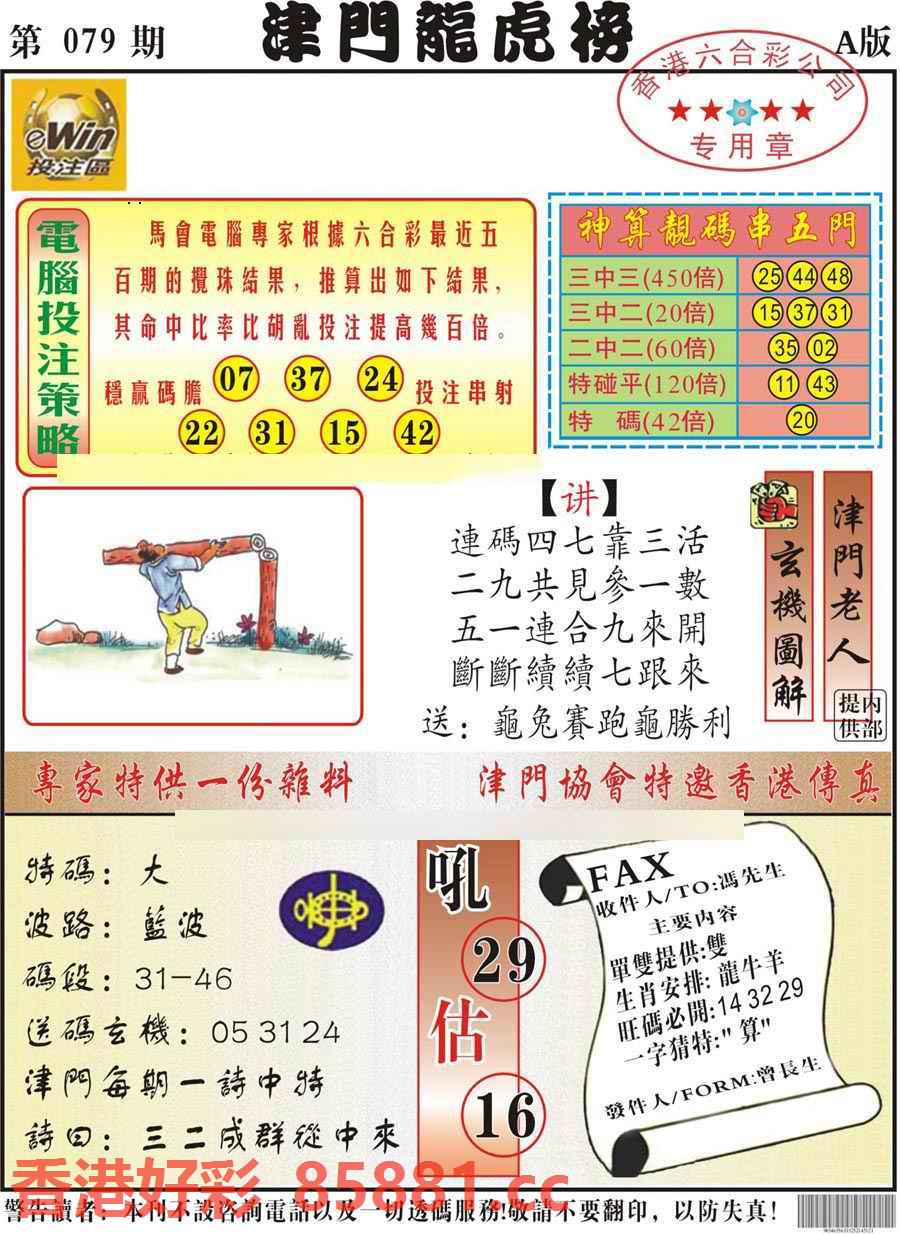 第 079 期
津門龍虎榜
A版
香港六合彩公司
专用章
eWin
投注區
電腦投注策略
馬會電腦專家根據六合彩最近五
百期的攪珠結果，推算出如下結果，
其命中比率比胡亂投注提高幾百倍。
穩贏碼膽 07 37 24 投注串射
22 31 15 42
神算靚碼串五門
三中三(450倍) 25 44 48
三中二(20倍) 15 37 31
二中二(60倍) 35 02
特碰平(120倍) 11 43
特 碼(42倍) 20
【讲】
連碼四七靠三活
二九共見參一數
五一連合九來開
斷斷續續七跟來
送：龜兔賽跑龜勝利
玄機圖解
津門老人
内部提供
專家特供一份雜料
津門協會特邀香港傳真
特碼：大
波路：藍波
碼段：31-46
送碼玄機：05 31 24
津門每期一詩中特
詩曰：三二成群從中來
吼
29
估
16
FAX
收件人/TO:馮先生
主要内容
單雙提供:雙
生肖安排: 龍牛羊
旺碼必開:14 32 29
一字猜特:"算"
發件人/FORM:曾長生
香港好彩 85881.cc
警告讀者：本刊不設咨詢電話以及一切透碼服務!敬請不要翻印，以防失真!